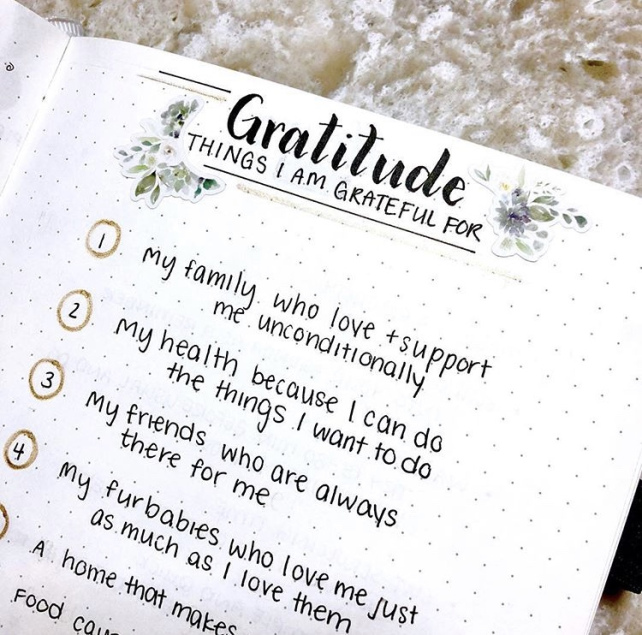 Gratitude
THINGS I AM GRATEFUL FOR
1 My family who love + support
me unconditionally
2 My health because I can do
the things I want to do
3 My friends who are always
there for me
4 My furbabies who love me just
as much as I love them
A home that makes
Food